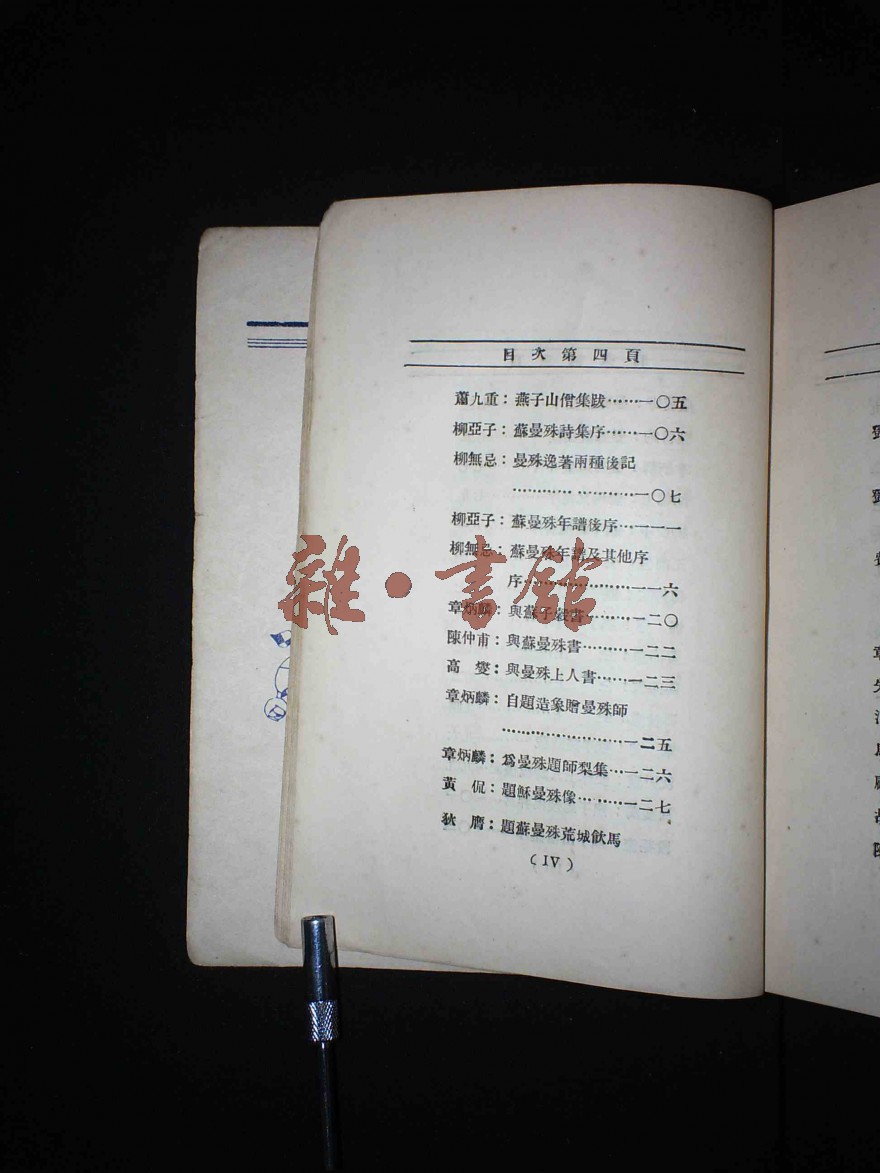 目次第四頁
蕭九重：燕子山僧集跋……一〇五
柳亞子：蘇曼殊詩集序……一〇六
柳無忌：曼殊逸著兩種後記
…………  …………一〇七
柳亞子：蘇曼殊年譜後序…一一一
柳無忌：蘇曼殊年譜及其他序
序…………………一一六
章炳麟：與蘇子穀書………一二〇
陳仲甫：與蘇曼殊書………一二二
高燮：與曼殊上人書……一二三
章炳麟：自題造象贈曼殊師
………………………一二五
章炳麟：爲曼殊題師梨集…一二六
黃侃：題穌曼殊像………一二七
狄膺：題蘇曼殊荒城飲馬
(IV)
雜·書館